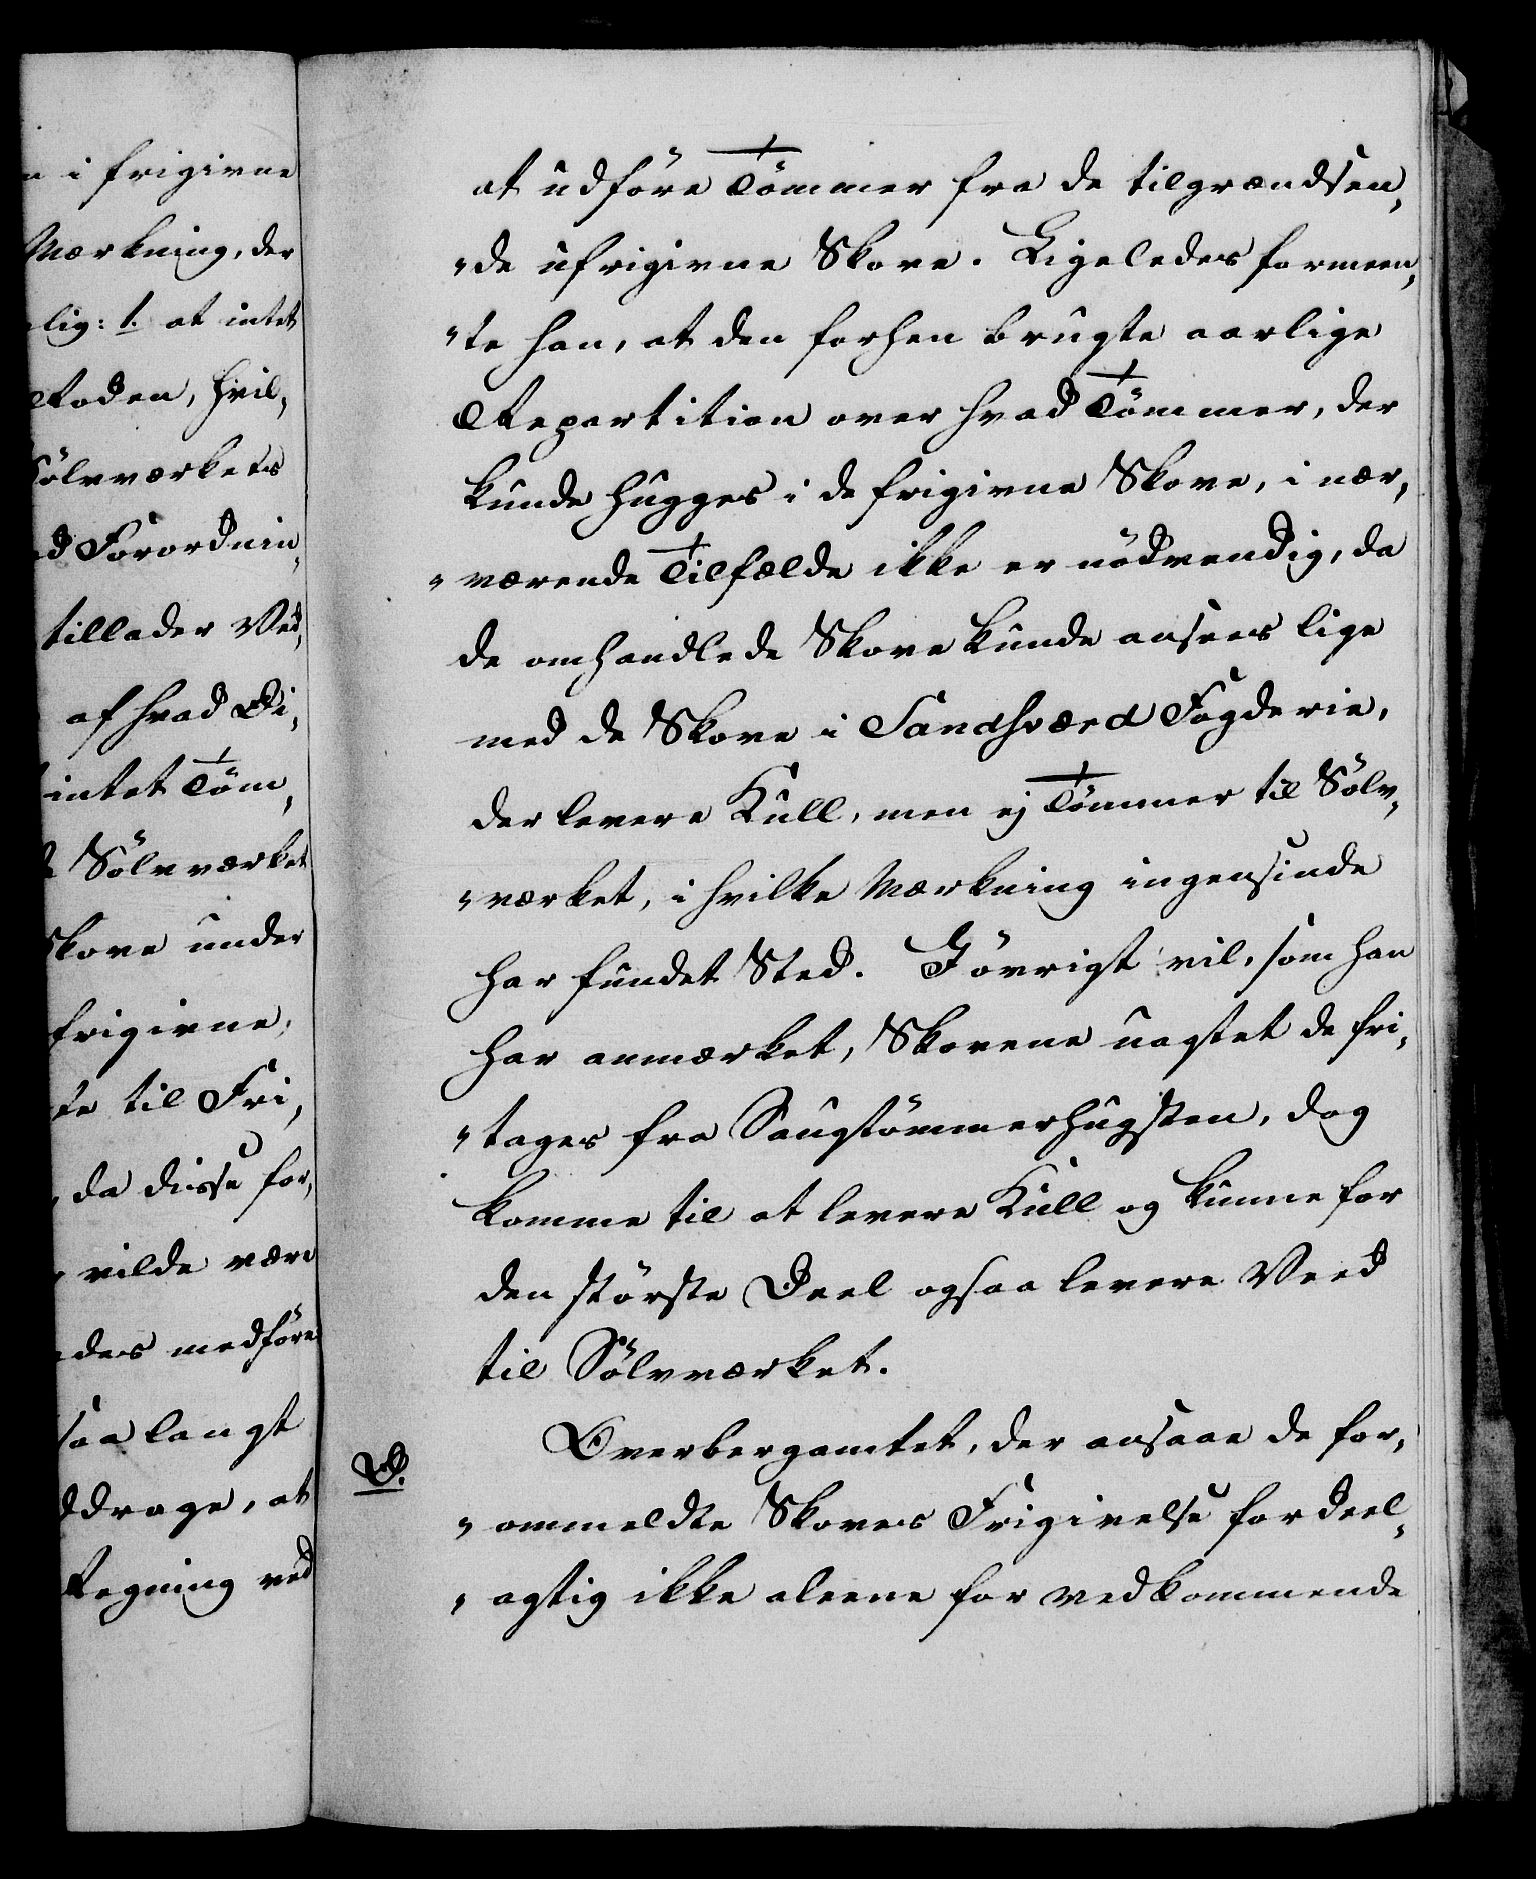 n i frigivne
Mærkning, der
lig: 1. at intet
Roden, hvil„
Sölvværkets
d Forordnin„
tillader Ved„
af hvad Di„
intet Töm„
Sölvværket
Skove under
frigivne;
te til Fri„
, da disse for„
vilde være
des medföre
saa langt
ddrage, at
Regning ved
at udföre Tömmer fra de tilgrændsen„
„de ufrigivne Skove. Ligeledes formeen„
„te han, at den forhen brugte aarlige
Repartition over hvad Tömmer, der
kunde hugges i de frigivne Skove, i nær„
„værende Tilfælde ikke er nödvendig, da
de omhandlede Skove kunde ansees lige
med de Skove i Sandsværd Fogderie,
der levere Kull, men ej Tömmer til Sölv„
„værket, i hvilke Mærkning ingensinde
har fundet Sted. Iövrigt vil, som han
har anmærket, Skovene uagtet de fri„
„tages fra Saugtömmerhugsten, dog
komme til at levere Kull og kunne for
den störste Deel ogsaa levere Veed
til Sölvværket.
D. Overbergamtet, der ansaae de for„
„ommeldte Skoves Frigivelse fordeel„
„agtig ikke aleene for vedkommende